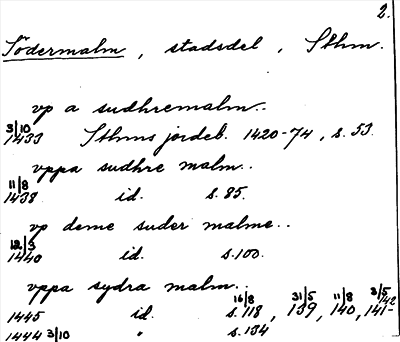 2.
Södermalm, stadsdel, Sthm.
vp a sudhremalm..
3/10
1433 Sthms jordeb. 1420-74, s. 53.
vppa sudhre malm..
11/8
1438 id. s. 85.
vp deme suder malme..
12/3
1440 id. s. 100.
vppa sydra malm..
16/8 31/5 11/8 3/5
1445 id. s. 118, 139, 140, 141-42
1444 3/10 " s. 134